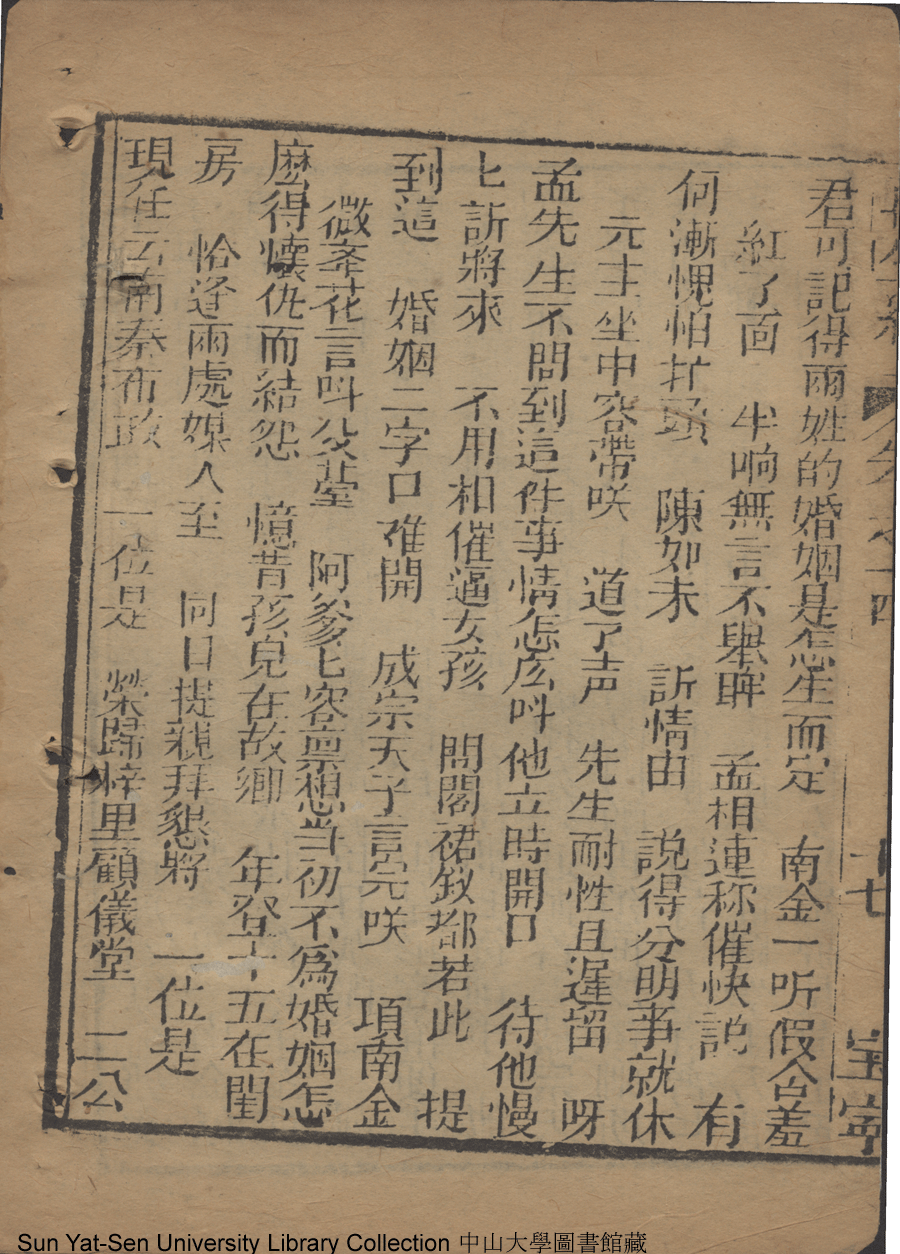 君可記得兩姓的婚姻是怎生而定　南金一听假含羞
紅了面　半响無言不舉眸　孟相連称催快說　有
何漸愧怕抬頭　陳如未　訴情由　說得分明事就休
元主坐中容帶咲　道了声　先生耐性且遲留　呀
孟先生不問到這件事情怎庅呌他立時開口　待他慢
匕訴將來　不用相催逼女孩　閨閣裙釵都若此　提
到這　婚姻二字口难開　成宗天子言完咲　項南金
微牽花言呌父臺　阿爹匕容禀想當初不爲婚姻怎
庅得懐仇而結怨　憶昔孩兒在故鄉　年登十五在閨
房　恰逢兩處媒人至　同日提親拜懇將　一位是
現任云南秦布政　一位是　榮歸梓里顧儀堂　二公
七
Sun Yat-Sen University Library Collection 中山大學圖書館藏